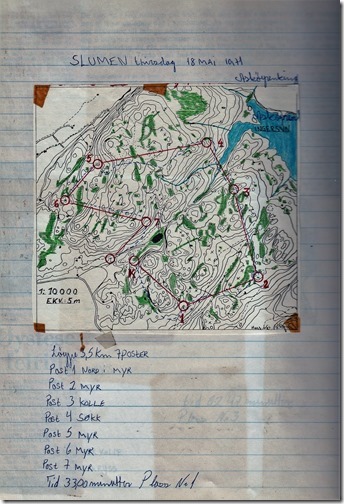 SLUMEN tirsdag 18 MAI 1971
5
4
3
6
7
K
2
1
1:10000
EKV. 5m
Løype 5,5 km 7 POSTER
Post 1 NORD i MYR
Post 2 MYR
Post 3 KOLLE
Post 4 SØKK
Post 5 MYR
Post 6 MYR
Post 7 MYR
Tid 3300 minutter Plass No 1